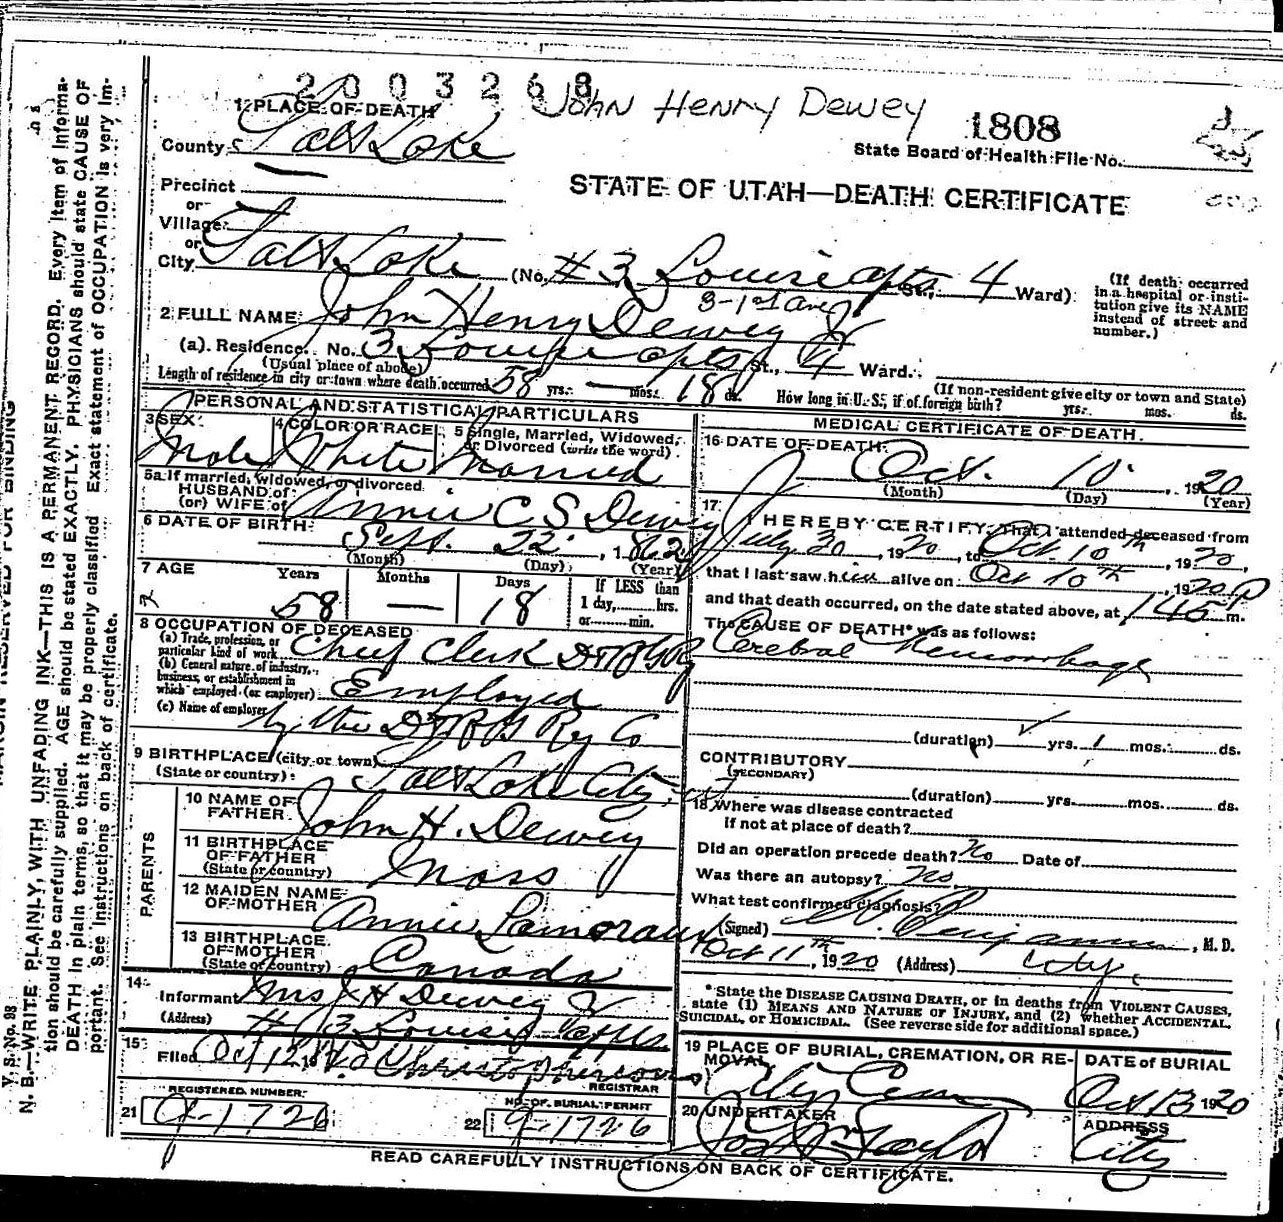 2003268
John Henry Dewey
1808
State Board of Health File No.
STATE OF UTAH—DEATH CERTIFICATE
1 PLACE OF DEATH
County Salt Lake
Precinct
or
Village
or
City Salt Lake (No. #3 Louise apts St., 4 Ward)
(If death occurred in a hospital or institution give its NAME instead of street and number.)
3-1st ave
2 FULL NAME John Henry Dewey Jr
(a). Residence. No. 3 Louise apts St., 4 Ward.
(Usual place of abode) (If non-resident give city or town and State)
Length of residence in city or town where death occurred 58 yrs. — mos. 18 ds. How long in U. S., if of foreign birth? yrs. mos. ds.
PERSONAL AND STATISTICAL PARTICULARS
3 SEX Male
4 COLOR OR RACE White
5 Single, Married, Widowed, or Divorced (write the word) Married
5a If married, widowed, or divorced
HUSBAND of
(or) WIFE of Annie C S Dewey
6 DATE OF BIRTH Sept. 22, 1862
(Month) (Day) (Year)
7 AGE Years 58 Months — Days 18 If LESS than 1 day, hrs. or min.
8 OCCUPATION OF DECEASED
(a) Trade, profession, or particular kind of work Chief Clerk D & R G Ry
(b) General nature of industry, business, or establishment in which employed (or employer) Employed
(c) Name of employer by the D & R G Ry Co
9 BIRTHPLACE (city or town)
(State or country) Salt Lake City,
PARENTS
10 NAME OF FATHER John H. Dewey
11 BIRTHPLACE OF FATHER (State or country) Mass
12 MAIDEN NAME OF MOTHER Annie
13 BIRTHPLACE OF MOTHER (State or country) Canada
14 Informant Mrs J H Dewey Jr
(Address) # 3 Louise Apts
15 Filed Oct 12
REGISTRAR
REGISTERED NUMBER
21 9-1726
NO. OF BURIAL PERMIT
22 9-1726
MEDICAL CERTIFICATE OF DEATH.
16 DATE OF DEATH Oct. 10, 1920
(Month) (Day) (Year)
17 I HEREBY CERTIFY, That I attended deceased from
July 30, 1920, to Oct. 10th, 1920,
that I last saw him alive on Oct 10th, 1920
and that death occurred, on the date stated above, at 145 P m.
The CAUSE OF DEATH* was as follows:
Cerebral Hemorrhage
(duration) yrs. 1 mos. ds.
CONTRIBUTORY
(SECONDARY)
(duration) yrs. mos. ds.
18 Where was disease contracted
if not at place of death?
Did an operation precede death? No Date of
Was there an autopsy? No
What test confirmed diagnosis?
(Signed) , M. D.
Oct 11th, 1920 (Address) City.
*State the DISEASE CAUSING DEATH, or in deaths from VIOLENT CAUSES, state (1) MEANS AND NATURE OF INJURY, and (2) whether ACCIDENTAL, SUICIDAL, or HOMICIDAL. (See reverse side for additional space.)
19 PLACE OF BURIAL, CREMATION, OR REMOVAL City Cem
DATE of BURIAL Oct 13 1920
20 UNDERTAKER Taylor
ADDRESS City
READ CAREFULLY INSTRUCTIONS ON BACK OF CERTIFICATE.
V. S. No. 98
N. B.—WRITE PLAINLY, WITH UNFADING INK—THIS IS A PERMANENT RECORD. Every item of information should be carefully supplied. AGE should be stated EXACTLY. PHYSICIANS should state CAUSE OF DEATH in plain terms, so that it may be properly classified. Exact statement of OCCUPATION is very important. See instructions on back of certificate.
MARGIN RESERVED FOR BINDING